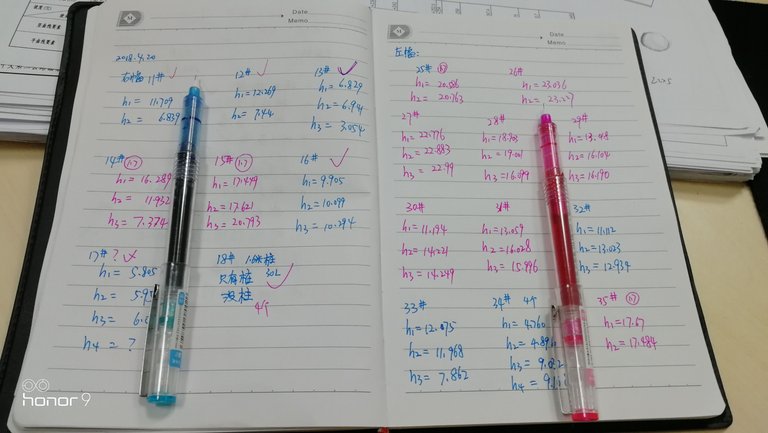 Date
Memo
2018.4.20
右幅 11#
h1= 11.709
h2= 6.839
12#
h1=12.269
h2= 7.44
13#
h1= 6.829
h2= 6.941
h3= 3.054
14#
h1= 16.289
h2= 11.932
h3= 7.374
15#
h1= 17.479
h2= 17.621
h3= 20.793
16#
h1= 9.905
h2= 10.099
h3= 10.294
17# ?
h1= 5.805
h2=
h3=
h4= ?
18#
只有桩
没柱
4个
Date
Memo
左幅:
25#
h1= 20.586
h2= 20.763
26#
h1=23.036
h2= 23.227
27#
h1= 22.776
h2= 22.883
h3= 22.99
28#
h1= 18.903
h2= 19.001
h3= 16.099
29#
h2= 16.104
h3= 16.190
30#
h1= 11.194
h2= 14.221
h3= 14.249
31#
h1= 13.059
h2= 16.028
h3= 15.996
32#
h1= 11.112
h2= 13.023
h3= 12.934
33#
h1= 12.075
h2= 11.968
h3= 7.862
34# 4个
h1= 4.760
h2=
h3=
h4=
35#
h1= 17.67
h2= 17.484
honor 9